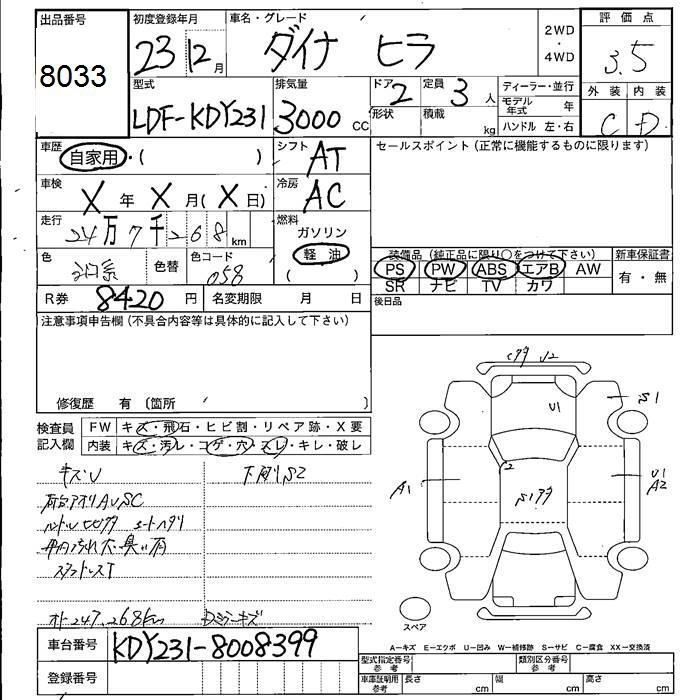 出品番号 8033
初度登録年月 23 12月
車名・グレード ダイナ ヒラ
2WD ・ 4WD
評価点 3.5
外装 C 内装 D
型式 LDF-KDY231
排気量 3000 CC
ドア 2
形状
定員 3人
積載 kg
ディーラー・並行
モデル年式 年
ハンドル 左・右
車歴 自家用・( )
シフト AT
セールスポイント(正常に機能するものに限ります)
車検 X年X月(X日)
冷房 AC
走行 24万7千268km
燃料 ガソリン
軽油
( )
色 色替 色コード 058
装備品(純正品に限り○をつけて下さい) 新車保証書
PS PW ABS エアB AW 有・無
SR ナビ TV カワ
R券 8420円 名変期限 月 日
後日品
注意事項申告欄(不具合内容等は具体的に記入して下さい)
修復歴 有 〔箇所 〕
検査員記入欄
FW キズ・飛石・ヒビ割・リペア跡・X要
内装 キズ・汚レ・コゲ・穴・スレ・キレ・破レ
キズU
下廻りS2
スタットレスT
オト 247,268km
車台番号 KDY231-8008399
登録番号
U2
U1
S1
A1
U1
A2
スペア
A-キズ E-エクボ U-凹み W-補修跡 S-サビ C-腐食 XX-交換済
型式指定番号 参考
類別区分番号 参考
車庫証明用 参考 長さ cm 幅 cm 高さ cm